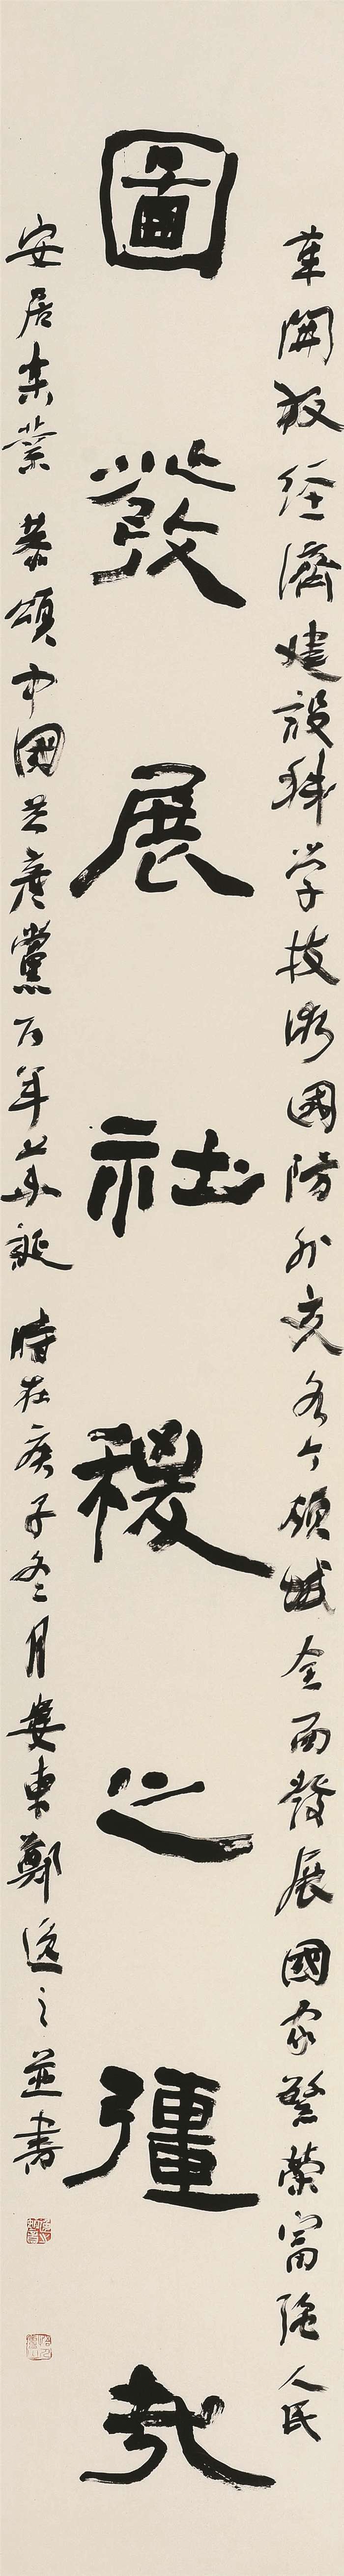 圖發展社稷之彊哉
革開放經濟建設科学技術國防外交各个領域全面發展國家繁榮富強人民
安居樂業 恭頌中國共產黨百年華誕 時在庚子冬月婁東鄭逸之並書